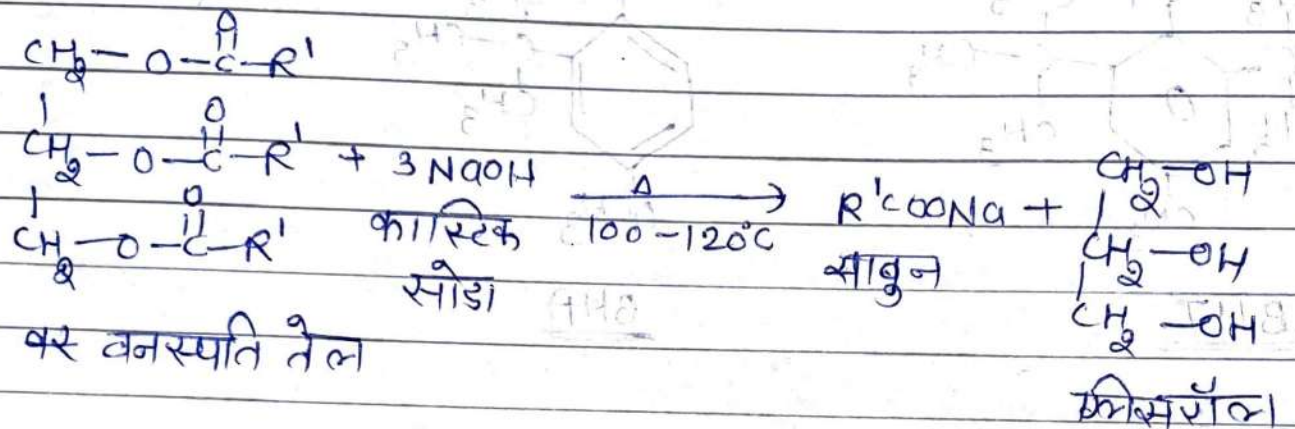 CH₂—O—C(=O)—R'
|
CH₂—O—C(=O)—R' + 3 NaOH —Δ→ 100-120°C R'COONa + CH₂—OH
|
CH₂—O—C(=O)—R' कास्टिक सोडा साबुन CH₂—OH
CH₂—OH
वनस्पति तेल
ग्लिसरॉल